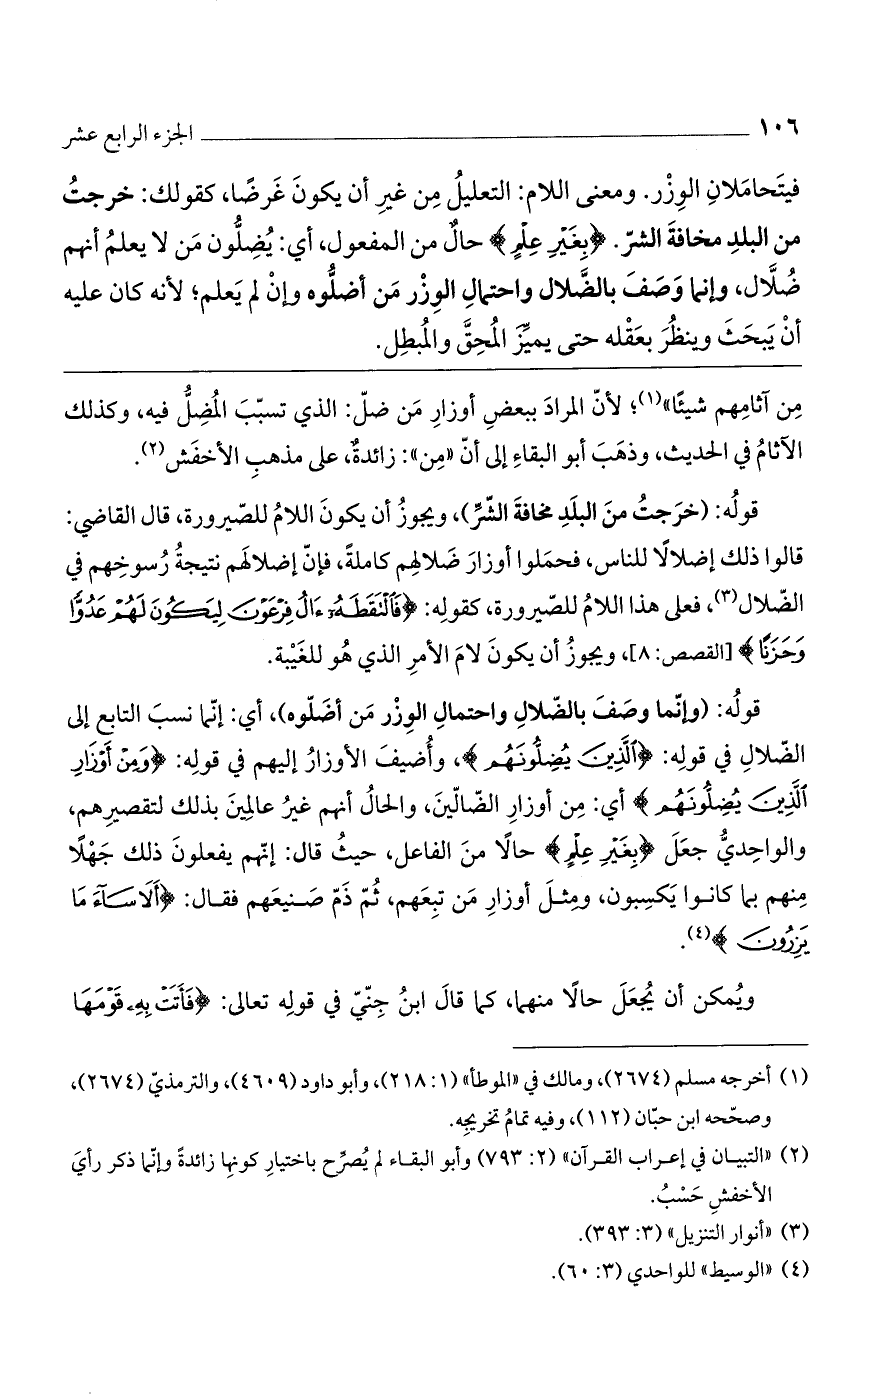 ١٠٦ ــــــــ الجزء الرابع عشر
فيتَحامَلانِ الوِزْر. ومعنى اللام: التعليلُ مِن غيرِ أن يكونَ غَرضًا، كقولك: خرجتُ
من البلدِ مخافةَ الشرّ. ﴿بِغَيْرِ عِلْمٍ﴾ حالٌ من المفعول، أي: يُضِلُّون مَن لا يعلمُ أنهم
ضُلَّال، وإنما وَصَفَ بالضَّلال واحتمالِ الوِزْر مَن أضلُّوه وإنْ لم يَعلم؛ لأنه كان عليه
أنْ يَبحَثَ وينظُرَ بعَقْله حتى يميِّزَ المُحِقَّ والمُبطِل.
مِن آثامِهم شيئًا»(١)؛ لأنّ المرادَ ببعضِ أوزارِ مَن ضلّ: الذي تسبّبَ المُضِلُّ فيه، وكذلك
الآثامُ في الحديث، وذهَبَ أبو البقاءِ إلى أنّ «مِن»: زائدةٌ، على مذهبِ الأخفَش(٢).
قولُه: (خرَجتُ منَ البلَدِ مخافةَ الشّرِّ)، ويجوزُ أن يكونَ اللامُ للصّيرورة، قال القاضي:
قالوا ذلك إضلالًا للناس، فحمَلوا أوزارَ ضَلالهِم كاملةً، فإنّ إضلالهَم نتيجةُ رُسوخِهم في
الضّلال(٣)، فعلى هذا اللامُ للصّيرورة، كقولِه: ﴿فَٱلْتَقَطَهُۥٓ ءَالُ فِرْعَوْنَ لِيَكُونَ لَهُمْ عَدُوًّا
وَحَزَنًا﴾ [القصص: ٨]، ويجوزُ أن يكونَ لامَ الأمرِ الذي هُو للغَيْبة.
قولُه: (وإنّما وصَفَ بالضّلالِ واحتمالِ الوِزْر مَن أضَلّوه)، أي: إنّما نسبَ التابع إلى
الضّلالِ في قولِه: ﴿ٱلَّذِينَ يُضِلُّونَهُم﴾، وأُضيفَ الأوزارُ إليهم في قولِه: ﴿وَمِنْ أَوْزَارِ
ٱلَّذِينَ يُضِلُّونَهُم﴾ أي: مِن أوزارِ الضّالّينَ، والحالُ أنهم غيرُ عالمِينَ بذلك لتقصيرِهم،
والواحِديُّ جعَلَ ﴿بِغَيْرِ عِلْمٍ﴾ حالًا منَ الفاعل، حيثُ قال: إنّهم يفعلونَ ذلك جَهْلًا
مِنهم بما كانوا يَكسِبون، ومِثلَ أوزارِ مَن تبِعَهم، ثُمّ ذَمّ صَنيعَهم فقال: ﴿أَلَا سَآءَ مَا
يَزِرُونَ﴾(٤).
ويُمكن أن يُجعَلَ حالًا منهما، كما قالَ ابنُ جِنّيّ في قولِه تعالى: ﴿فَأَتَتْ بِهِۦ قَوْمَهَا
(١) أخرجه مسلم (٢٦٧٤)، ومالك في «الموطأ» (١: ٢١٨)، وأبو داود (٤٦٠٩)، والترمذيّ (٢٦٧٤)،
وصحّحه ابن حبّان (١١٢)، وفيه تمامُ تخريجِه.
(٢) «التبيان في إعراب القرآن» (٢: ٧٩٣) وأبو البقاء لم يُصرِّح باختيارِ كونِها زائدةً وإنّما ذكر رأيَ
الأخفشِ حَسْبُ.
(٣) «أنوار التنزيل» (٣: ٣٩٣).
(٤) «الوسيط» للواحدي (٣: ٦٠).